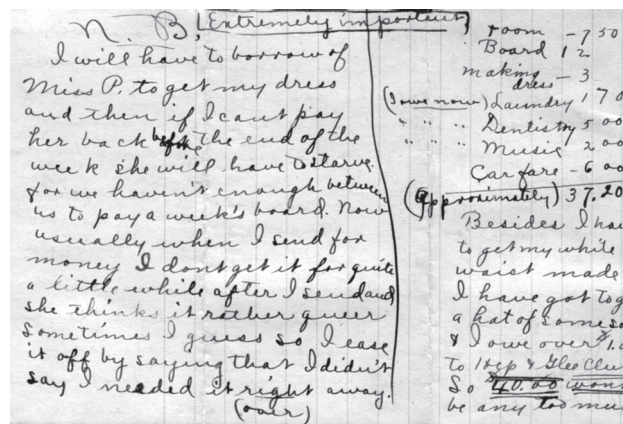 N. B. (Extremely important)
I will have to borrow of
Miss P. to get my dress
and then if I cant pay
her back before the end of the
week she will have to starve
for we haven't enough between
us to pay a week's board. Now
usually when I send for
money I dont get it for quite
a little while after I send and
she thinks it rather queer
sometimes I guess so I ease
it off by saying that I didn't
say I needed it right away.
(over)
room - 7 50
Board 12
making dress - 3
(I owe now) Laundry 1 70
" " " Dentistry 5 00
" " " Music 2 00
Car fare - 6 00
(approximately) 37.20
Besides I hav
to get my white
waist made
I have got to g
a hat of some so
& I owe over $1.0
to Dep & Glee Clu
So $40.00 wont
be any too muc